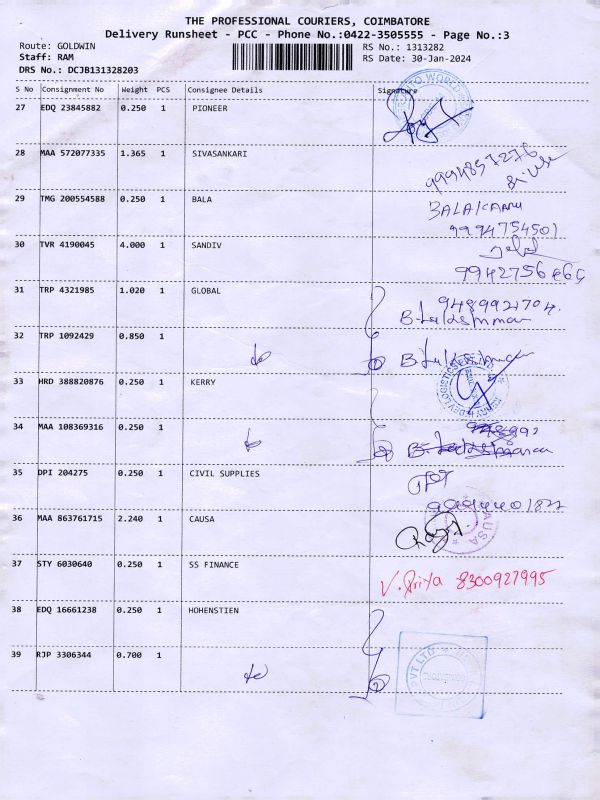 THE PROFESSIONAL COURIERS, COIMBATORE
Delivery Runsheet - PCC - Phone No.:0422-3505555 - Page No.:3
Route: GOLDWIN RS No.: 1313282
Staff: RAM RS Date: 30-Jan-2024
DRS No.: DCJB131328203
S No Consignment No Weight PCS Consignee Details Signature
27 EDQ 23845882 0.250 1 PIONEER
28 MAA 572077335 1.365 1 SIVASANKARI
9994857276
29 TMG 200554588 0.250 1 BALA
BALAKANU
9994754501
30 TVR 4190045 4.000 1 SANDIV
9942756464
31 TRP 4321985 1.020 1 GLOBAL
9489921704.
32 TRP 1092429 0.850 1
33 HRD 388820876 0.250 1 KERRY
34 MAA 108369316 0.250 1
35 DPI 204275 0.250 1 CIVIL SUPPLIES
36 MAA 863761715 2.240 1 CAUSA
CAUSA
37 STY 6030640 0.250 1 SS FINANCE
V. Priya 8300927995
38 EDQ 16661238 0.250 1 HOHENSTIEN
39 RJP 3306344 0.700 1
PVT LTD